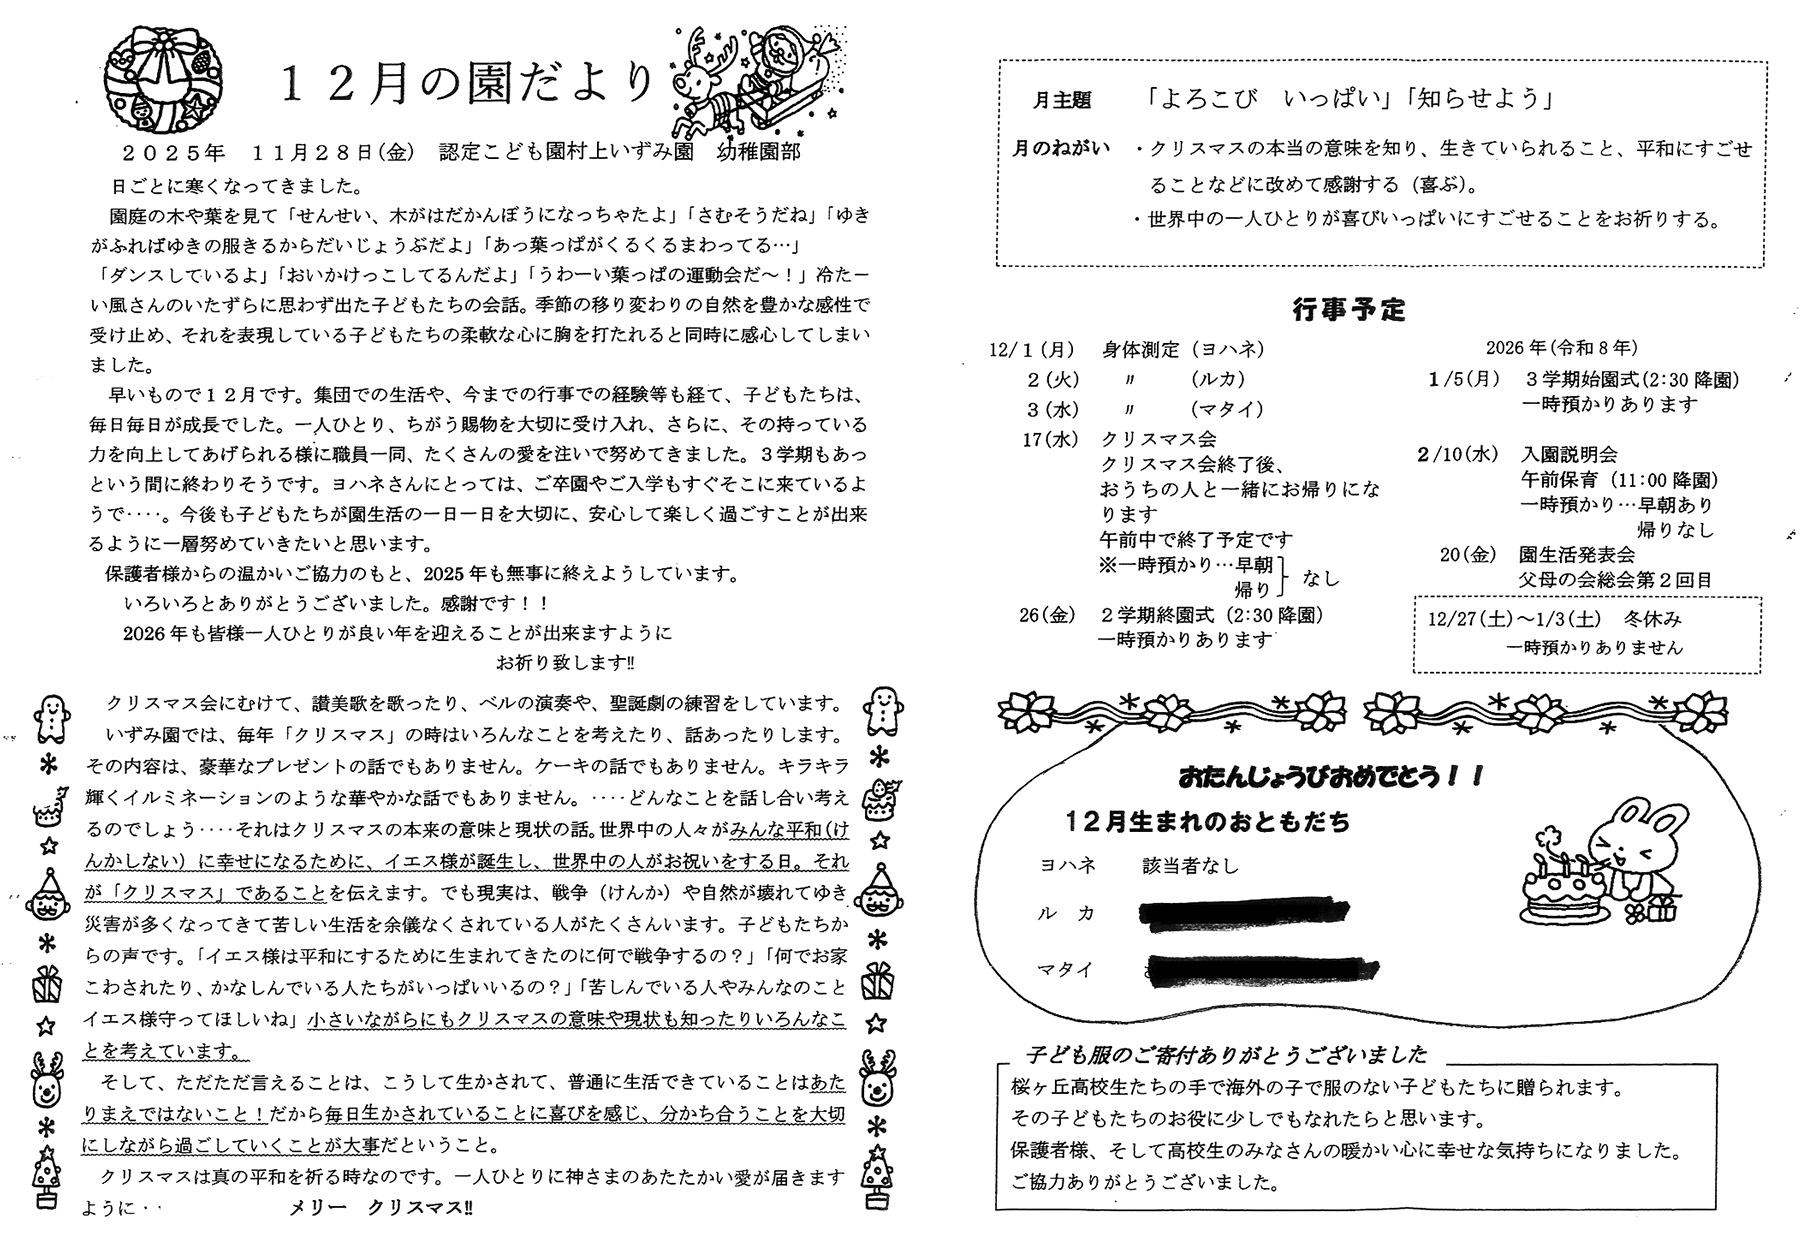 １２月の園だより
２０２５年　１１月２８日(金)　認定こども園村上いずみ園　幼稚園部
日ごとに寒くなってきました。
園庭の木や葉を見て「せんせい、木がはだかんぼうになっちゃたよ」「さむそうだね」「ゆき
がふればゆきの服きるからだいじょうぶだよ」「あっ葉っぱがくるくるまわってる…」
「ダンスしているよ」「おいかけっこしてるんだよ」「うわーい葉っぱの運動会だ～！」冷たー
い風さんのいたずらに思わず出た子どもたちの会話。季節の移り変わりの自然を豊かな感性で
受け止め、それを表現している子どもたちの柔軟な心に胸を打たれると同時に感心してしまい
ました。
早いもので１２月です。集団での生活や、今までの行事での経験等も経て、子どもたちは、
毎日毎日が成長でした。一人ひとり、ちがう賜物を大切に受け入れ、さらに、その持っている
力を向上してあげられる様に職員一同、たくさんの愛を注いで努めてきました。３学期もあっ
という間に終わりそうです。ヨハネさんにとっては、ご卒園やご入学もすぐそこに来ているよ
うで‥‥。今後も子どもたちが園生活の一日一日を大切に、安心して楽しく過ごすことが出来
るように一層努めていきたいと思います。
保護者様からの温かいご協力のもと、2025 年も無事に終えようしています。
いろいろとありがとうございました。感謝です！！
2026 年も皆様一人ひとりが良い年を迎えることが出来ますように
お祈り致します‼
クリスマス会にむけて、讃美歌を歌ったり、ベルの演奏や、聖誕劇の練習をしています。
いずみ園では、毎年「クリスマス」の時はいろんなことを考えたり、話あったりします。
その内容は、豪華なプレゼントの話でもありません。ケーキの話でもありません。キラキラ
輝くイルミネーションのような華やかな話でもありません。‥‥どんなことを話し合い考え
るのでしょう‥‥それはクリスマスの本来の意味と現状の話。世界中の人々がみんな平和（け
んかしない）に幸せになるために、イエス様が誕生し、世界中の人がお祝いをする日。それ
が「クリスマス」であることを伝えます。でも現実は、戦争（けんか）や自然が壊れてゆき
災害が多くなってきて苦しい生活を余儀なくされている人がたくさんいます。子どもたちか
らの声です。「イエス様は平和にするために生まれてきたのに何で戦争するの？」「何でお家
こわされたり、かなしんでいる人たちがいっぱいいるの？」「苦しんでいる人やみんなのこと
イエス様守ってほしいね」小さいながらにもクリスマスの意味や現状も知ったりいろんなこ
とを考えています。
そして、ただただ言えることは、こうして生かされて、普通に生活できていることはあた
りまえではないこと！だから毎日生かされていることに喜びを感じ、分かち合うことを大切
にしながら過ごしていくことが大事だということ。
クリスマスは真の平和を祈る時なのです。一人ひとりに神さまのあたたかい愛が届きます
ように‥　　メリー　クリスマス‼
月主題　「よろこび　いっぱい」「知らせよう」
月のねがい　・クリスマスの本当の意味を知り、生きていられること、平和にすごせ
ることなどに改めて感謝する（喜ぶ）。
・世界中の一人ひとりが喜びいっぱいにすごせることをお祈りする。
行事予定
12/１(月)　身体測定（ヨハネ）
２(火)　〃　（ルカ）
３(水)　〃　（マタイ）
17(水)　クリスマス会
クリスマス会終了後、
おうちの人と一緒にお帰りにな
ります
午前中で終了予定です
※一時預かり…早朝
帰り　なし
26(金)　２学期終園式（2:30 降園）
一時預かりあります
2026 年(令和８年)
１/5(月)　３学期始園式(2:30 降園)
一時預かりあります
２/10(水)　入園説明会
午前保育（11:00 降園）
一時預かり…早朝あり
帰りなし
20(金)　園生活発表会
父母の会総会第２回目
12/27(土)～1/3(土)　冬休み
一時預かりありません
おたんじょうびおめでとう！！
12月生まれのおともだち
ヨハネ　該当者なし
ル　カ
マタイ
子ども服のご寄付ありがとうございました
桜ヶ丘高校生たちの手で海外の子で服のない子どもたちに贈られます。
その子どもたちのお役に少しでもなれたらと思います。
保護者様、そして高校生のみなさんの暖かい心に幸せな気持ちになりました。
ご協力ありがとうございました。